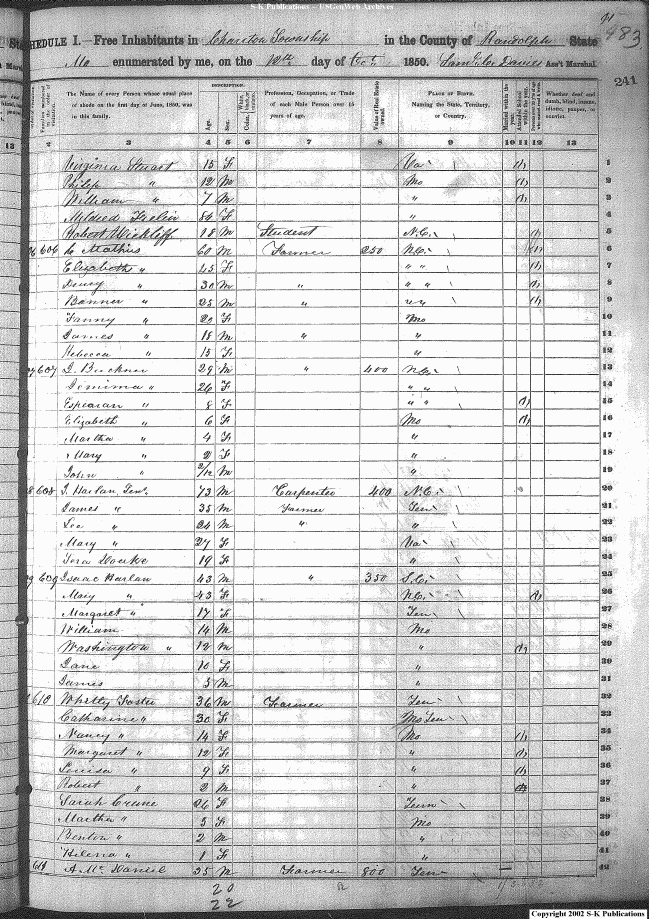 S-K Publications - USGenWeb Archives
483
SCHEDULE I. Free Inhabitants in Chariton Township in the County of Randolph State
Mo enumerated by me, on the day of Oct 1850. Davies Ass't Marshal.
241
The Name of every Person whose usual place of abode on the first day of June, 1850, was in this family.
DESCRIPTION.
Age.
Sex.
Color.
Profession, Occupation, or Trade of each Male Person over 15 years of age.
Value of Real Estate owned.
PLACE OF BIRTH. Naming the State, Territory, or Country.
Married within the year.
Attended School within the year.
Whether deaf and dumb, blind, insane, idiotic, pauper, or convict.
3 4 5 6 7 8 9 10 11 12 13
Virginia Stuart 15 F Va 1 1
Philip " 12 M Mo 1 2
William " 7 M " 1 3
Mildred 84 F " 4
Robert Wickliff 18 M Student N.C. 1 5
606 Mathis 60 M Farmer 250 N.C. 1 6
Elizabeth " 45 F " " 1 7
" 30 M " " " 1 8
Banner " 25 M " " " 1 9
Fanny " 20 F Mo 10
James " 18 M " " 11
Rebecca " 15 F " 12
607 Buckner 29 M " 400 N.C. 13
Jemima " 26 F " " 14
" 8 F " " 1 15
Elizabeth " 6 F Mo 1 16
Martha " 4 F " 17
Mary " 2 F " 18
John " 2/12 M " 19
608 J. Harlan, Sen. 73 M Carpenter 400 N.C. 20
James " 35 M Farmer Ten 21
Lee " 24 M " " 22
Mary " 27 F Va 23
19 F " 24
609 Isaac Harlan 43 M " 350 S.C. 25
Mary " 43 F N.C. 1 26
Margaret " 17 F Ten 27
William 14 M Mo 28
Washington " 12 M " 1 29
Jane 10 F " 30
James 5 M " 31
610 Foster 36 M Farmer Ten 32
Catharine " 30 F Mo Ten 33
Nancy " 14 F Mo 1 34
Margaret " 12 F " 1 35
Louisa " 9 F " 1 36
Robert " 2 M " 37
Sarah Crane 26 F Tenn 38
Martha " 5 F Mo 39
Benton " 2 M " 40
Helena " 1 F " 41
611 A Mc Daniel 35 M Farmer 800 Ten 42
20
22
Copyright 2002 S-K Publications